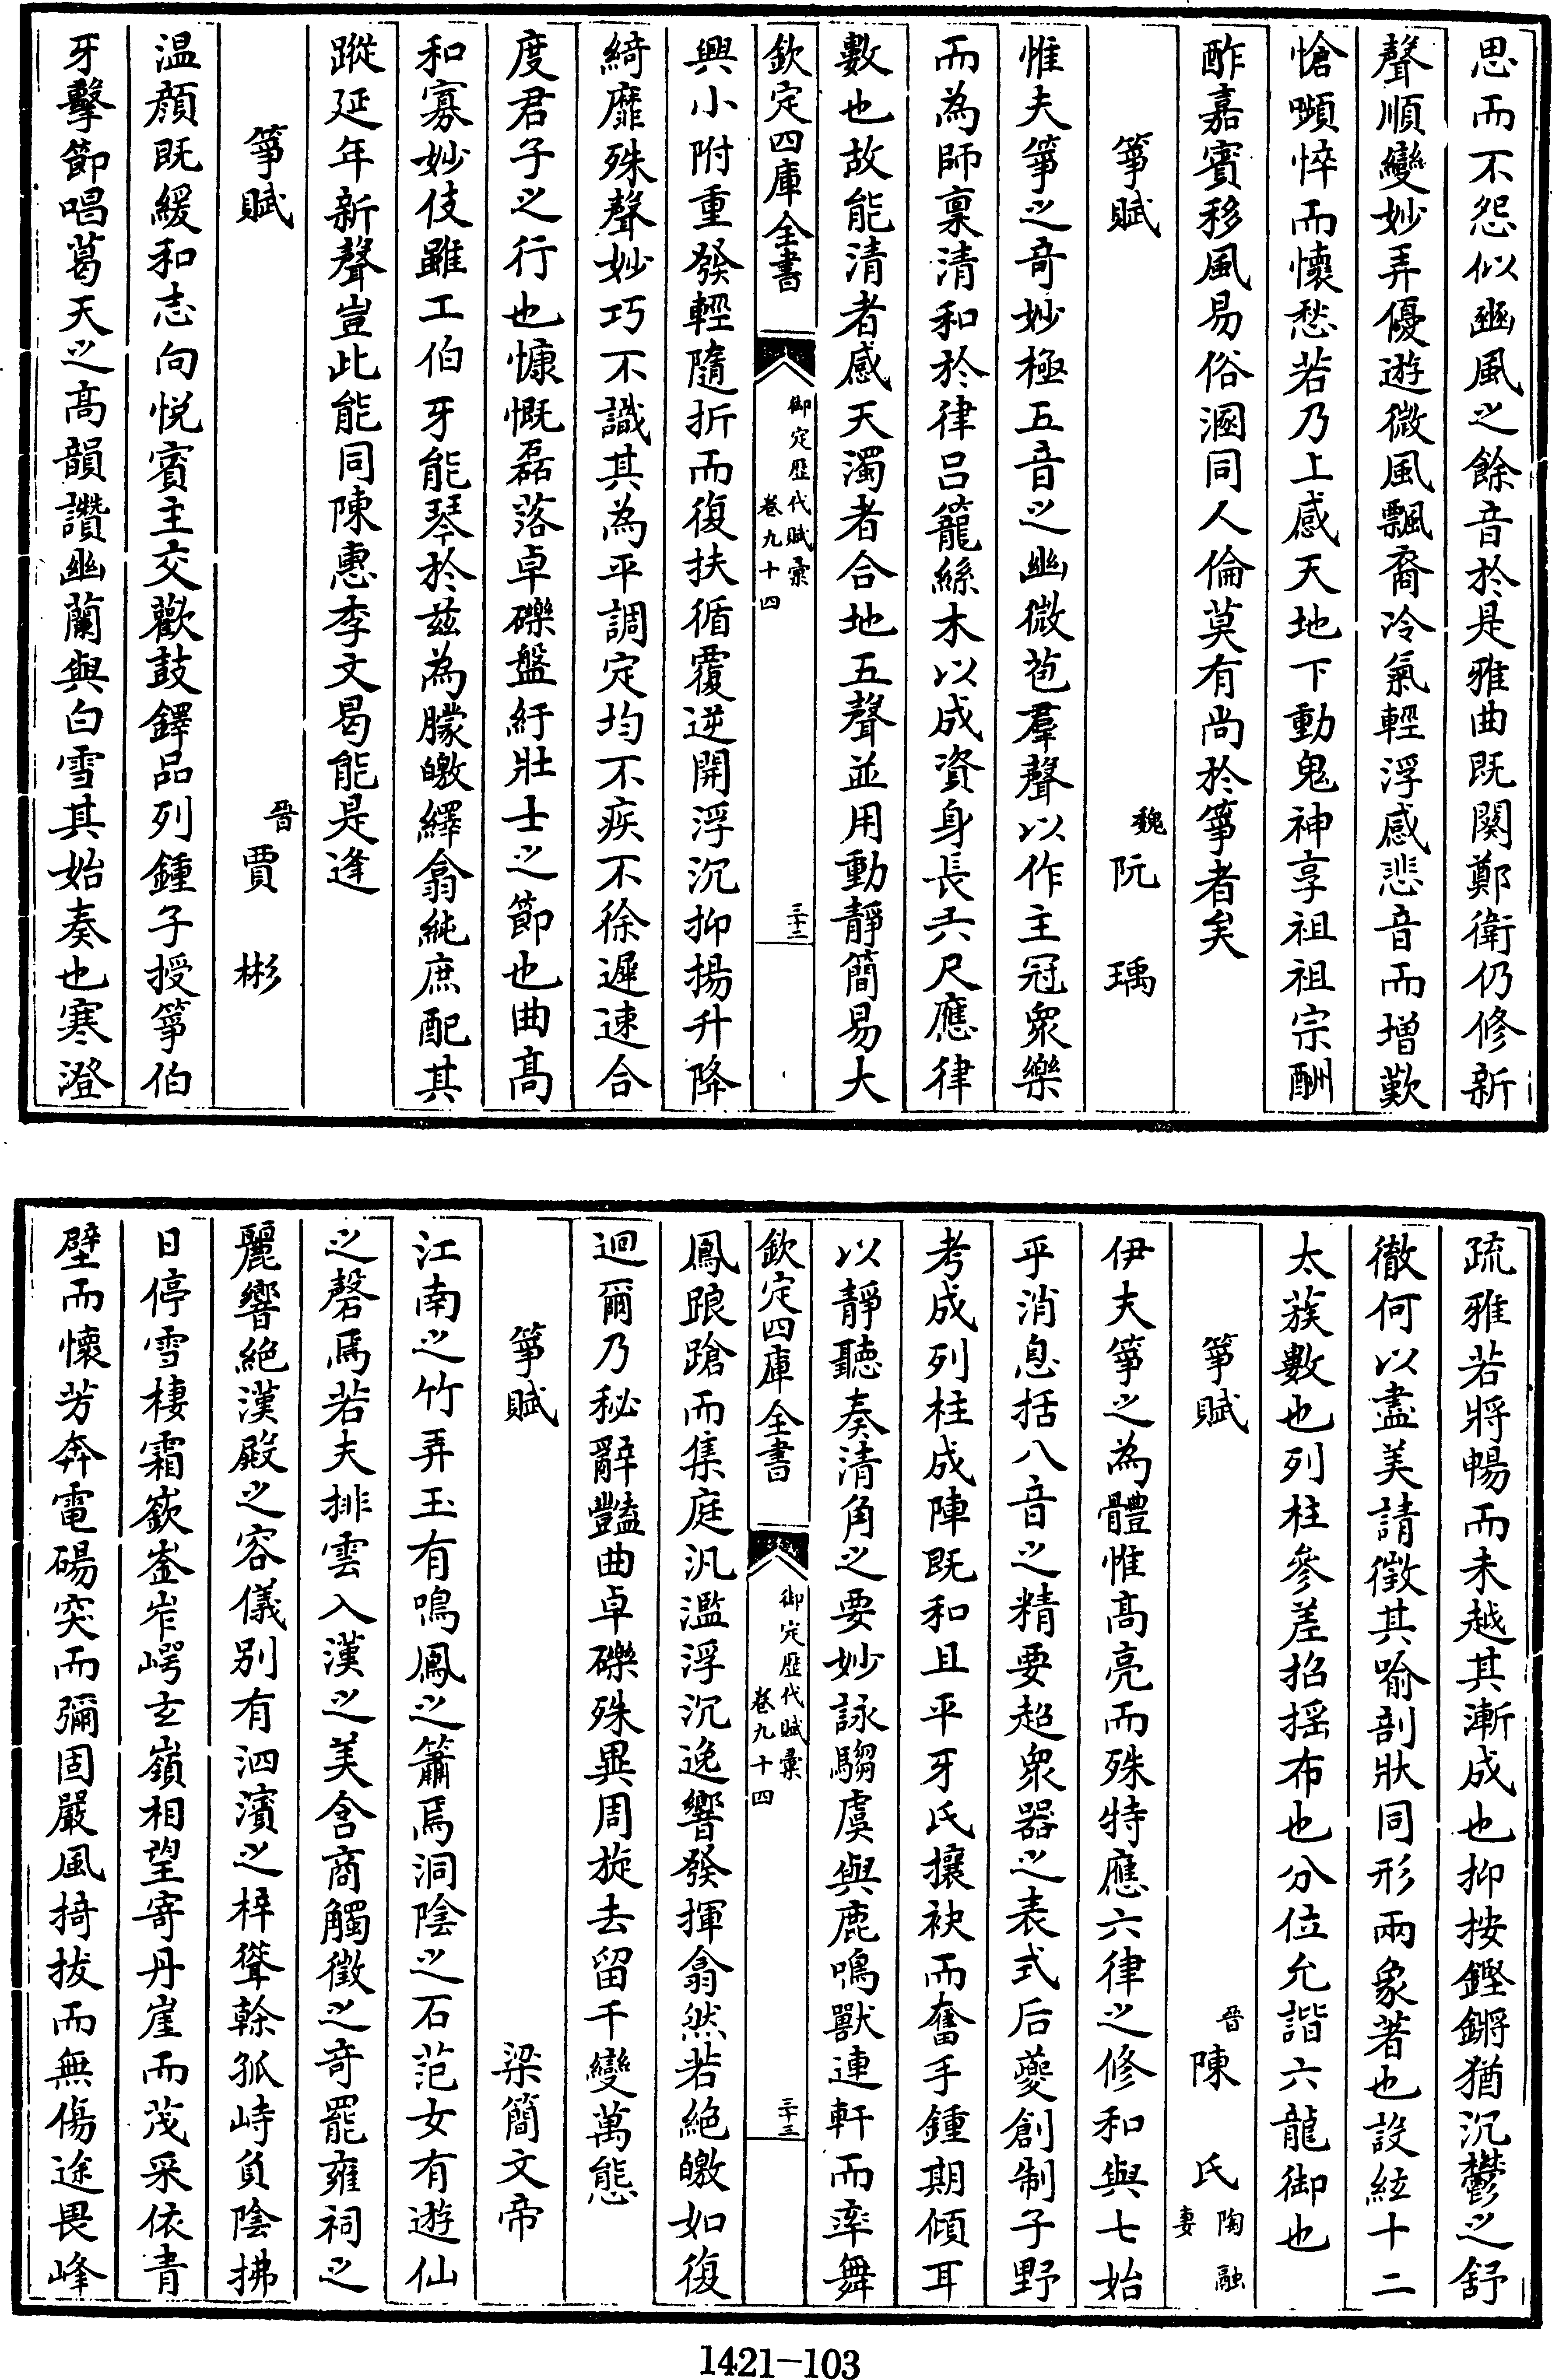 思而不怨似豳風之餘音於是雅曲既闋鄭衛仍修新
聲順變妙弄優遊微風飄裔冷氣輕浮感悲音而增歎
愴嚬悴而懷愁若乃上感天地下動鬼神享祖祖宗酬
酢嘉賓移風易俗溷同人倫莫有尚於箏者矣
箏賦 魏阮瑀
惟夫箏之奇妙極五音之幽微苞羣聲以作主冠衆樂
而為師稟清和於律呂籠絲木以成資身長六尺應律
數也故能清者感天濁者合地五聲並用動靜簡易大
欽定四庫全書 御定歷代賦彙 卷九十四 三十二
興小附重發輕隨折而復扶循覆逆開浮沉抑揚升降
綺靡殊聲妙巧不識其為平調定均不疾不徐遲速合
度君子之行也慷慨磊落卓礫盤紆壯士之節也曲高
和寡妙伎雖工伯牙能琴於兹為朦皦繹翕純庶配其
蹤延年新聲豈此能同陳惠李文曷能是逢
箏賦 晉賈彬
温顔既緩和志向悅賓主交歡鼓鐸品列鍾子授箏伯
牙擊節唱葛天之高韻讚幽蘭與白雪其始奏也寒澄
疏雅若將暢而未越其漸成也抑按鏗鏘猶沉鬱之舒
徹何以盡美請徵其喻剖狀同形兩象著也設絃十二
太蔟數也列柱參差招摇布也分位允諧六龍御也
箏賦 晉陳氏陶融妻
伊夫箏之為體惟高亮而殊特應六律之修和與七始
乎消息括八音之精要超衆器之表式后夔創制子野
考成列柱成陣既和且平牙氏攘袂而奮手鍾期傾耳
以靜聽奏清角之要妙詠騶虞與鹿鳴獸連軒而率舞
欽定四庫全書 御定歷代賦彙 卷九十四 三十三
鳳踉蹌而集庭汎濫浮沉逸響發揮翕然若絶皦如復
迴爾乃秘辭豔曲卓礫殊異周旋去留千變萬態
箏賦 梁簡文帝
江南之竹弄玉有鳴鳳之簫焉洞陰之石范女有遊仙
之磬焉若夫排雲入漢之美含商觸徵之奇罷雍祠之
麗響絶漢殿之容儀别有泗濱之梓聳榦孤峙負陰拂
日停雪棲霜嶔崟岝崿玄嶺相望寄丹崖而茂采依青
壁而懷芳奔電碭突而彌固嚴風掎拔而無傷途畏峰
1421-103